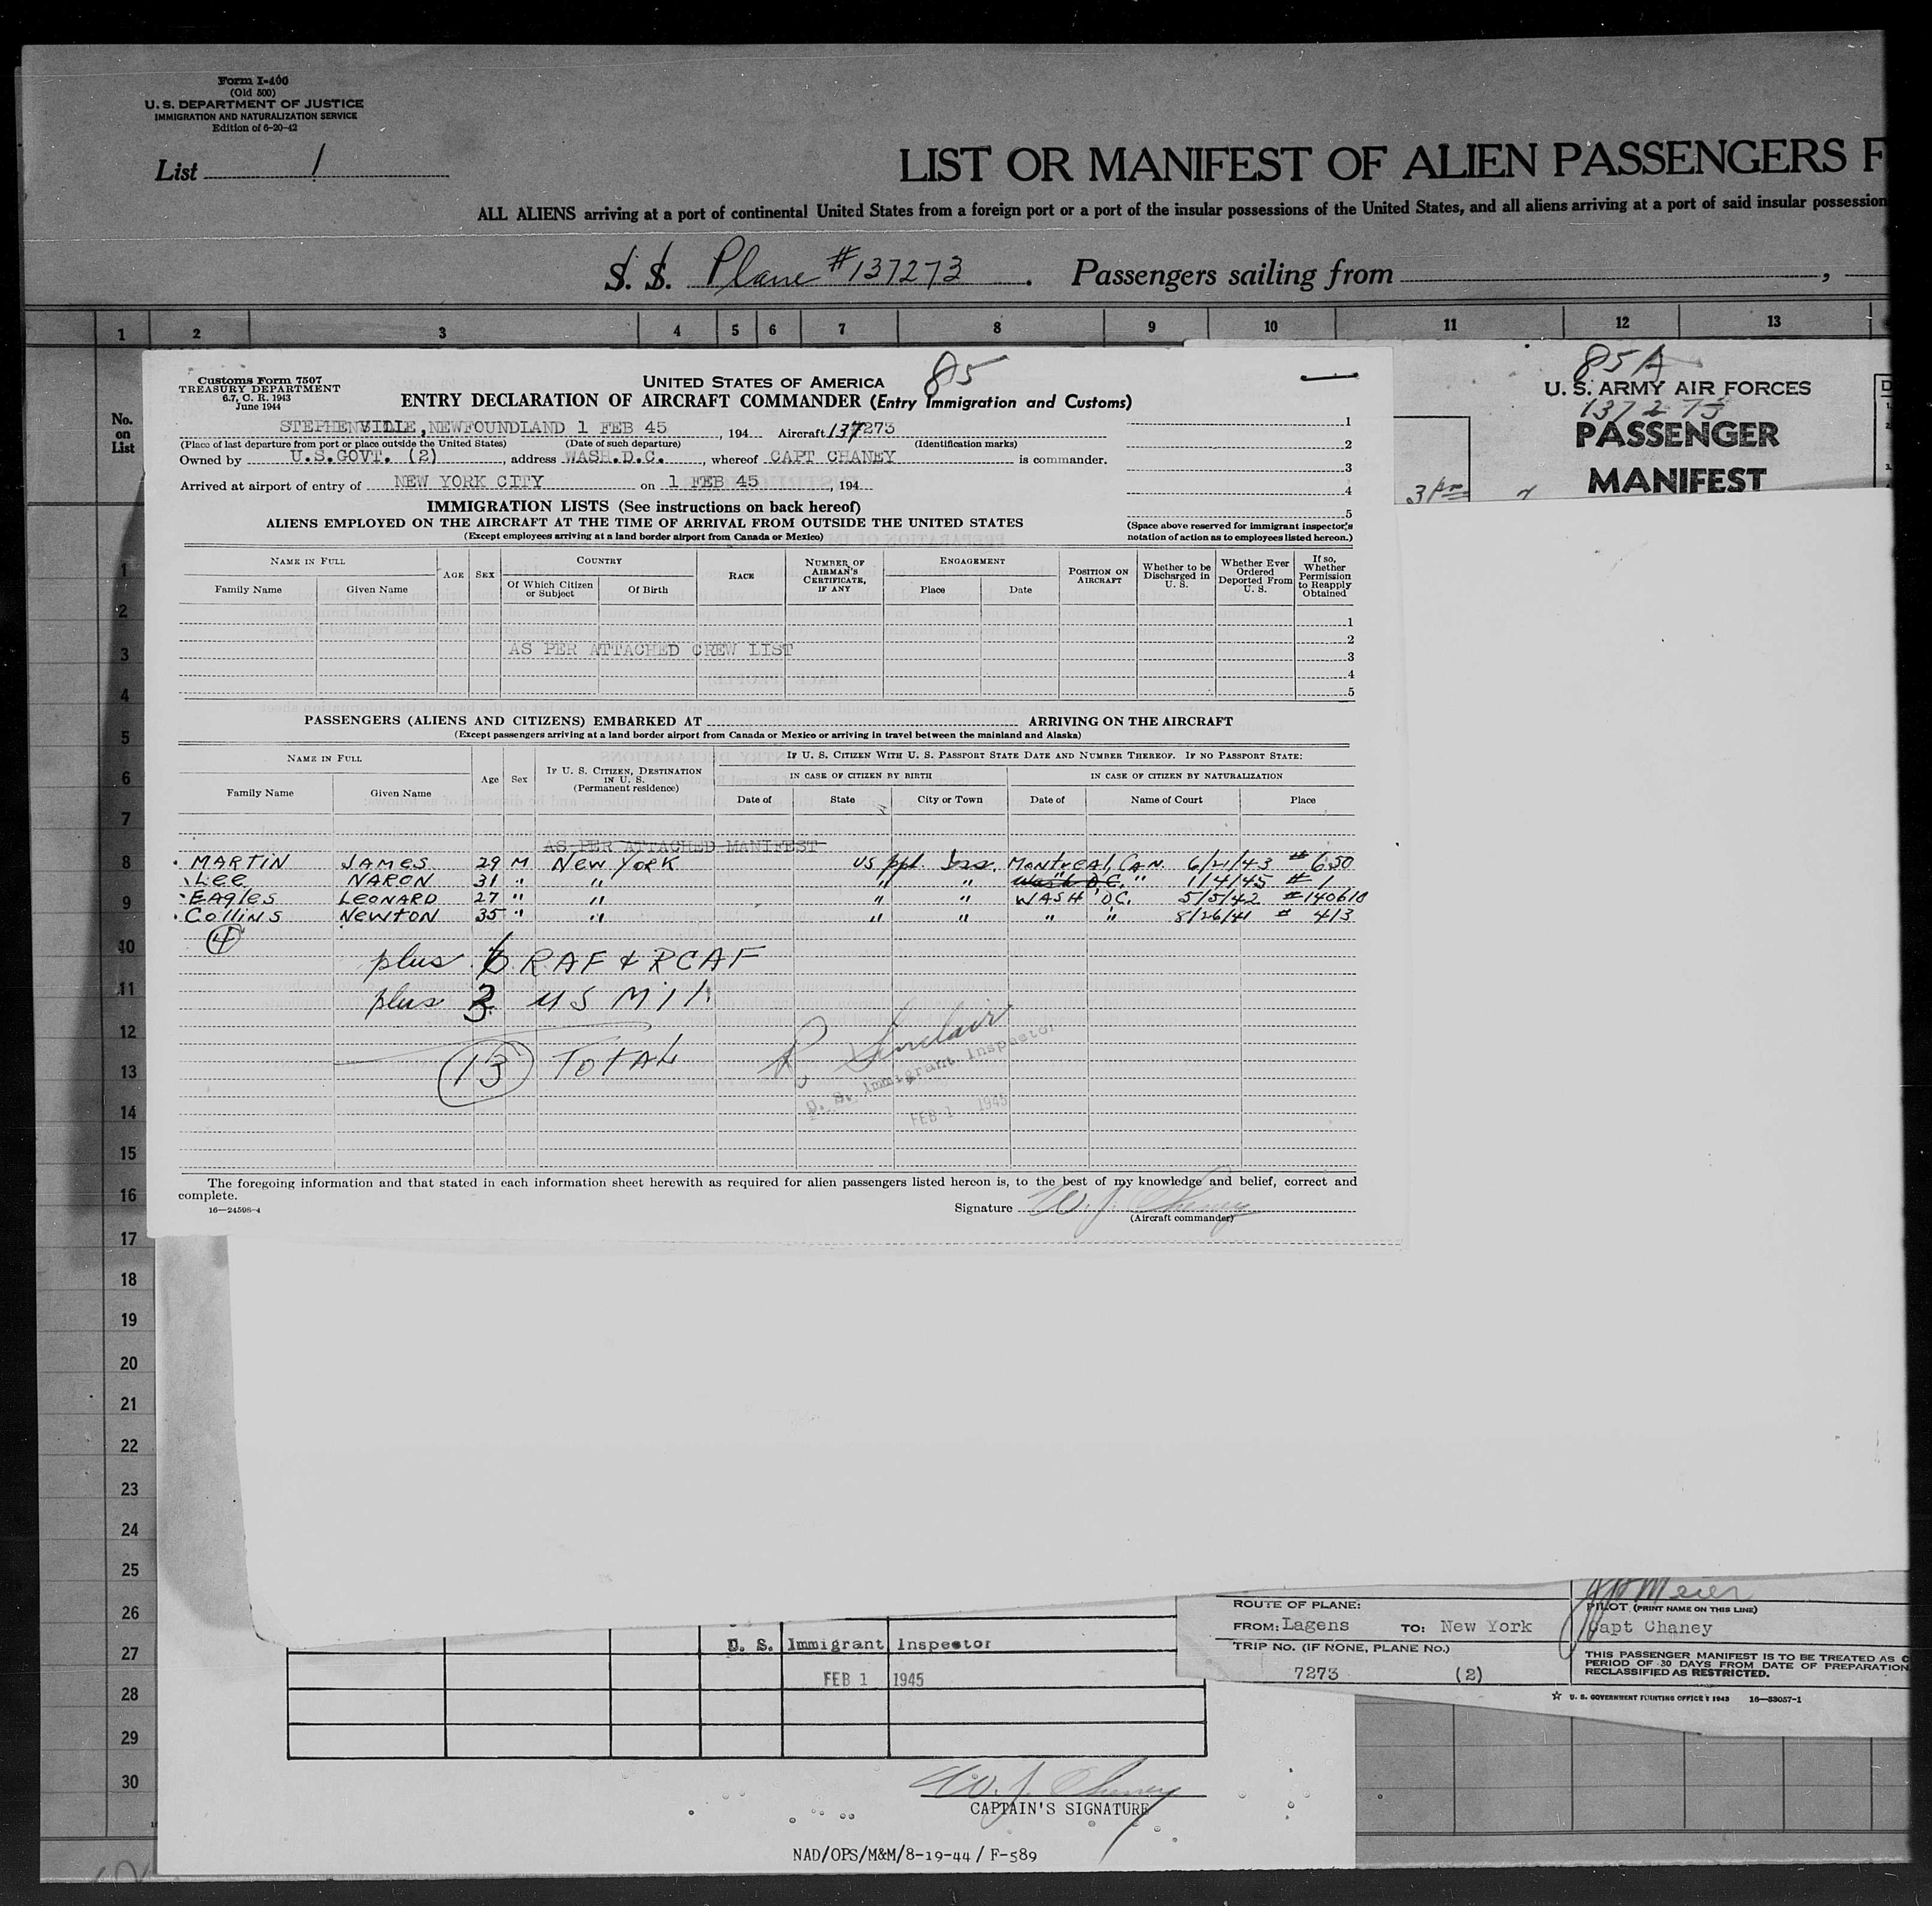 Form I-400
(Old 500)
U. S. DEPARTMENT OF JUSTICE
IMMIGRATION AND NATURALIZATION SERVICE
Edition of 6-20-42
List 1
LIST OR MANIFEST OF ALIEN PASSENGERS F
ALL ALIENS arriving at a port of continental United States from a foreign port or a port of the insular possessions of the United States, and all aliens arriving at a port of said insular possession
S. S. Plane #137273. Passengers sailing from ,
1 2 3 4 5 6 7 8 9 10 11 12 13
No. on List
85
Customs Form 7507
TREASURY DEPARTMENT
6.7, C. R. 1943
June 1944
UNITED STATES OF AMERICA
ENTRY DECLARATION OF AIRCRAFT COMMANDER (Entry Immigration and Customs)
STEPHENVILLE, NEWFOUNDLAND 1 FEB 45, 194 Aircraft 137273
(Place of last departure from port or place outside the United States) (Date of such departure) (Identification marks)
Owned by U.S.GOVT. (2), address WASH.D.C., whereof CAPT CHANEY is commander.
Arrived at airport of entry of NEW YORK CITY on 1 FEB 45, 194
1
2
3
4
5
IMMIGRATION LISTS (See instructions on back hereof)
ALIENS EMPLOYED ON THE AIRCRAFT AT THE TIME OF ARRIVAL FROM OUTSIDE THE UNITED STATES
(Except employees arriving at a land border airport from Canada or Mexico)
(Space above reserved for immigrant inspector's
notation of action as to employees listed hereon.)
NAME IN FULL AGE SEX COUNTRY RACE NUMBER OF AIRMAN'S CERTIFICATE, IF ANY ENGAGEMENT POSITION ON AIRCRAFT Whether to be Discharged in U. S. Whether Ever Ordered Deported From U. S. If so, Whether Permission to Reapply Obtained
Family Name Given Name Of Which Citizen or Subject Of Birth Place Date
1
2
AS PER ATTACHED CREW LIST
3
4
5
PASSENGERS (ALIENS AND CITIZENS) EMBARKED AT ARRIVING ON THE AIRCRAFT
(Except passengers arriving at a land border airport from Canada or Mexico or arriving in travel between the mainland and Alaska)
NAME IN FULL Age Sex IF U. S. CITIZEN, DESTINATION IN U. S. (Permanent residence) IF U. S. CITIZEN WITH U. S. PASSPORT STATE DATE AND NUMBER THEREOF. IF NO PASSPORT STATE:
IN CASE OF CITIZEN BY BIRTH IN CASE OF CITIZEN BY NATURALIZATION
Family Name Given Name Date of State City or Town Date of Name of Court Place
AS PER ATTACHED MANIFEST
MARTIN JAMES 29 M New York US ppt. Iss. Montreal, Can. 6/21/43 #650
Lee NARON 31 " " " " Wash D.C. " 1/4/45 # 1
Eagles LEONARD 27 " " " " WASH DC. 5/5/42 #140610
Collins Newton 35 " " " " " " 8/26/41 # 413
4
plus 6 RAF & RCAF
plus 3 US Mil.
13 TOTAL
R. Sinclair
U. S. Immigrant Inspector
FEB 1 1945
The foregoing information and that stated in each information sheet herewith as required for alien passengers listed hereon is, to the best of my knowledge and belief, correct and
complete.
16—24598-4
Signature W. J. Chaney
(Aircraft commander)
85A
U. S. ARMY AIR FORCES
137273
PASSENGER
MANIFEST
1
2
3
4
5
6
7
8
9
10
11
12
13
14
15
16
17
18
19
20
21
22
23
24
25
26
27
28
29
30
U. S. Immigrant Inspector
FEB 1 1945
W. J. Chaney
CAPTAIN'S SIGNATURE
NAD/OPS/M&M/8-19-44 / F-589
ROUTE OF PLANE:
FROM: Lagens TO: New York
TRIP NO. (IF NONE, PLANE NO.)
7273 (2)
Meier
PILOT (PRINT NAME ON THIS LINE)
Capt Chaney
THIS PASSENGER MANIFEST IS TO BE TREATED AS C
PERIOD OF 30 DAYS FROM DATE OF PREPARATION
RECLASSIFIED AS RESTRICTED.
☆ U. S. GOVERNMENT PRINTING OFFICE: 1943 16—33057-1